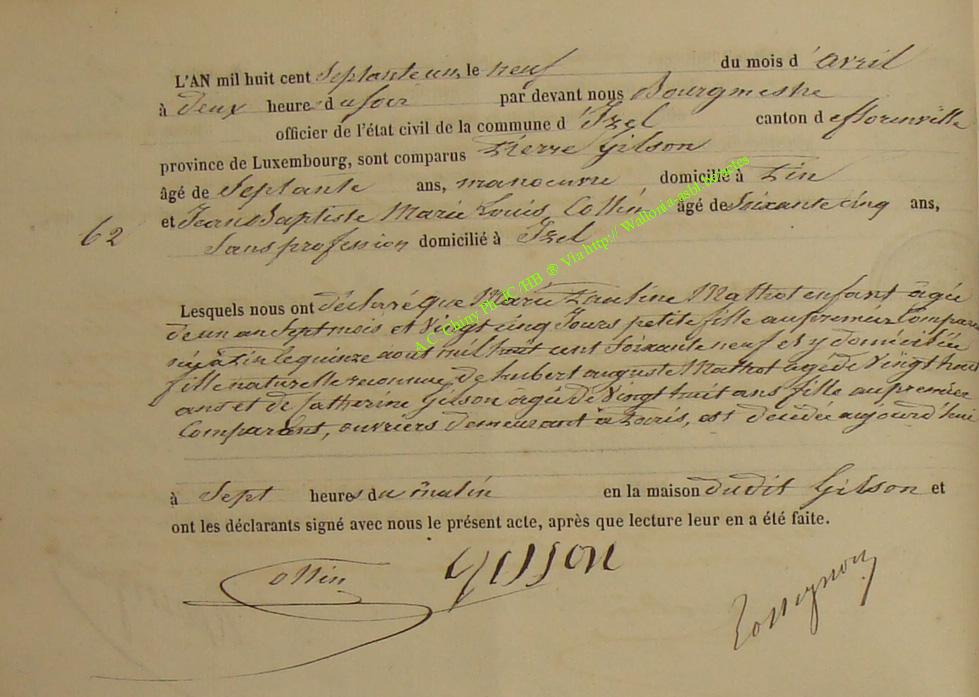 L'AN mil huit cent Septante un, le neuf du mois d'avril
à deux heures du soir par devant nous Bourgmestre
officier de l'état civil de la commune d'Izel canton de florenville
province de Luxembourg, sont comparus Pierre Gilson
âgé de Septante ans, manoeuvre domicilié à Pin
et Jean Baptiste Marie Louis Collin âgé de Soixante cinq ans,
62 Sans profession domicilié à Izel
Lesquels nous ont déclaré que Marie Pauline Mathot enfant agée
de un an Sept mois et Vingt cinq Jours petite fille au premier Comparant
née à Pin le quinze aout mil huit cent Soixante neuf et y domiciliée
fille naturelle reconnue de hubert auguste Mathot agé de Vingt huit
ans et de Catherine Gilson agée de Vingt huit ans fille au premier
Comparant, ouvriers demeurant à Paris, est décédée aujourd'hui
à Sept heures du matin en la maison dudit Gilson et
ont les déclarants signé avec nous le présent acte, après que lecture leur en a été faite.
Collin Gilson Rossignon
A.C. Chiny Ph JC/HB ® Via http:// Wallonia-asbl.be/actes